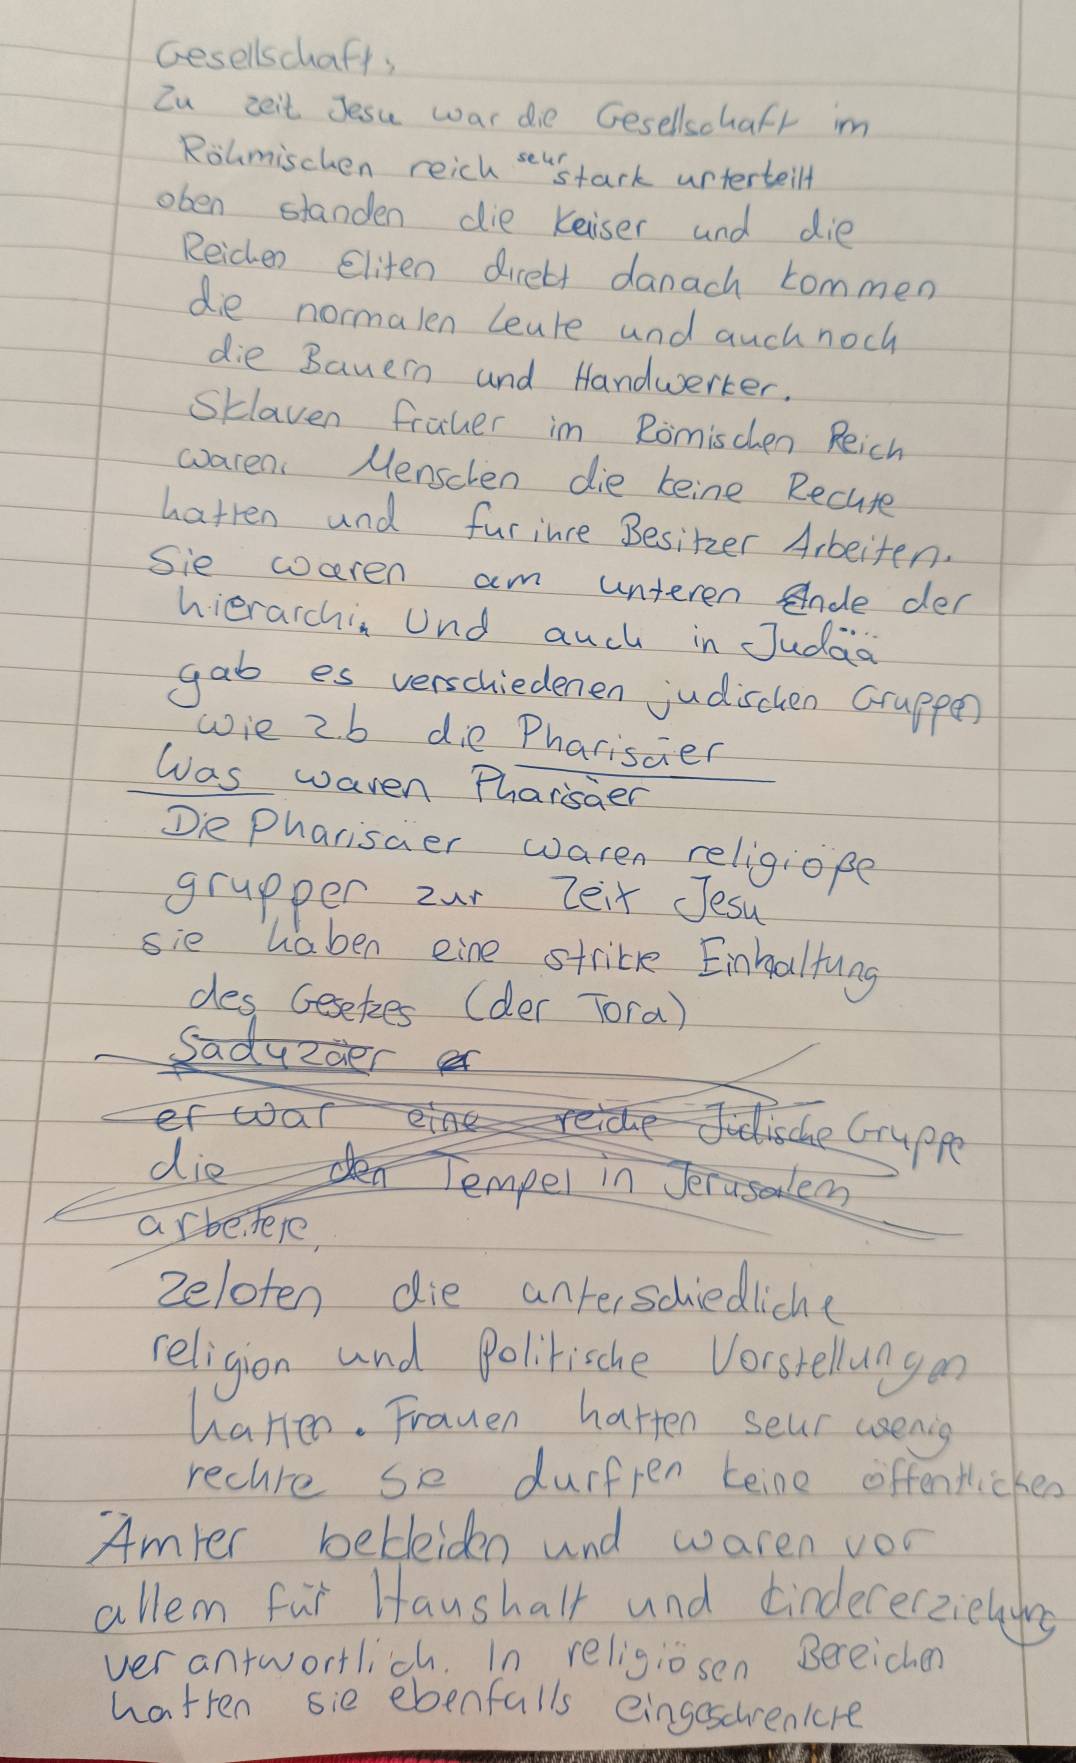 Gesellschaft,
Zu zeit Jesu war die Gesellschaft im
Röhmischen reich sehr stark unterteilt
oben standen die Keiser und die
Reichen Eliten direkt danach kommen
die normalen Leute und auch noch
die Bauern und Handwerker.
Sklaven früher im Römischen Reich
waren Menschen die keine Rechte
hatten und fur ihre Besitzer Arbeiten.
Sie waren am unteren Ende der
hierarchi. Und auch in Judäa
gab es verschiedenen judischen Gruppen
wie z.b die Pharisäer
Was waren Pharisäer
Die Pharisäer waren religiöße
gruppen zur Zeit Jesu
sie haben eine strikte Einhaltung
des Gesetzes (der Tora)
Saduzäer er
er war eine reiche Jüdische Gruppe
die den Tempel in Jerusalem
arbeitete,
Zeloten die unterschiedliche
religion und Politische Vorstellungen
hatten. Frauen hatten sehr wenig
rechte sie durften keine öffentlichen
Ämter bekleiden und waren vor
allem für Haushalt und kindererziehung
verantwortlich. In religiösen Bereichen
hatten sie ebenfalls eingeschrenkte